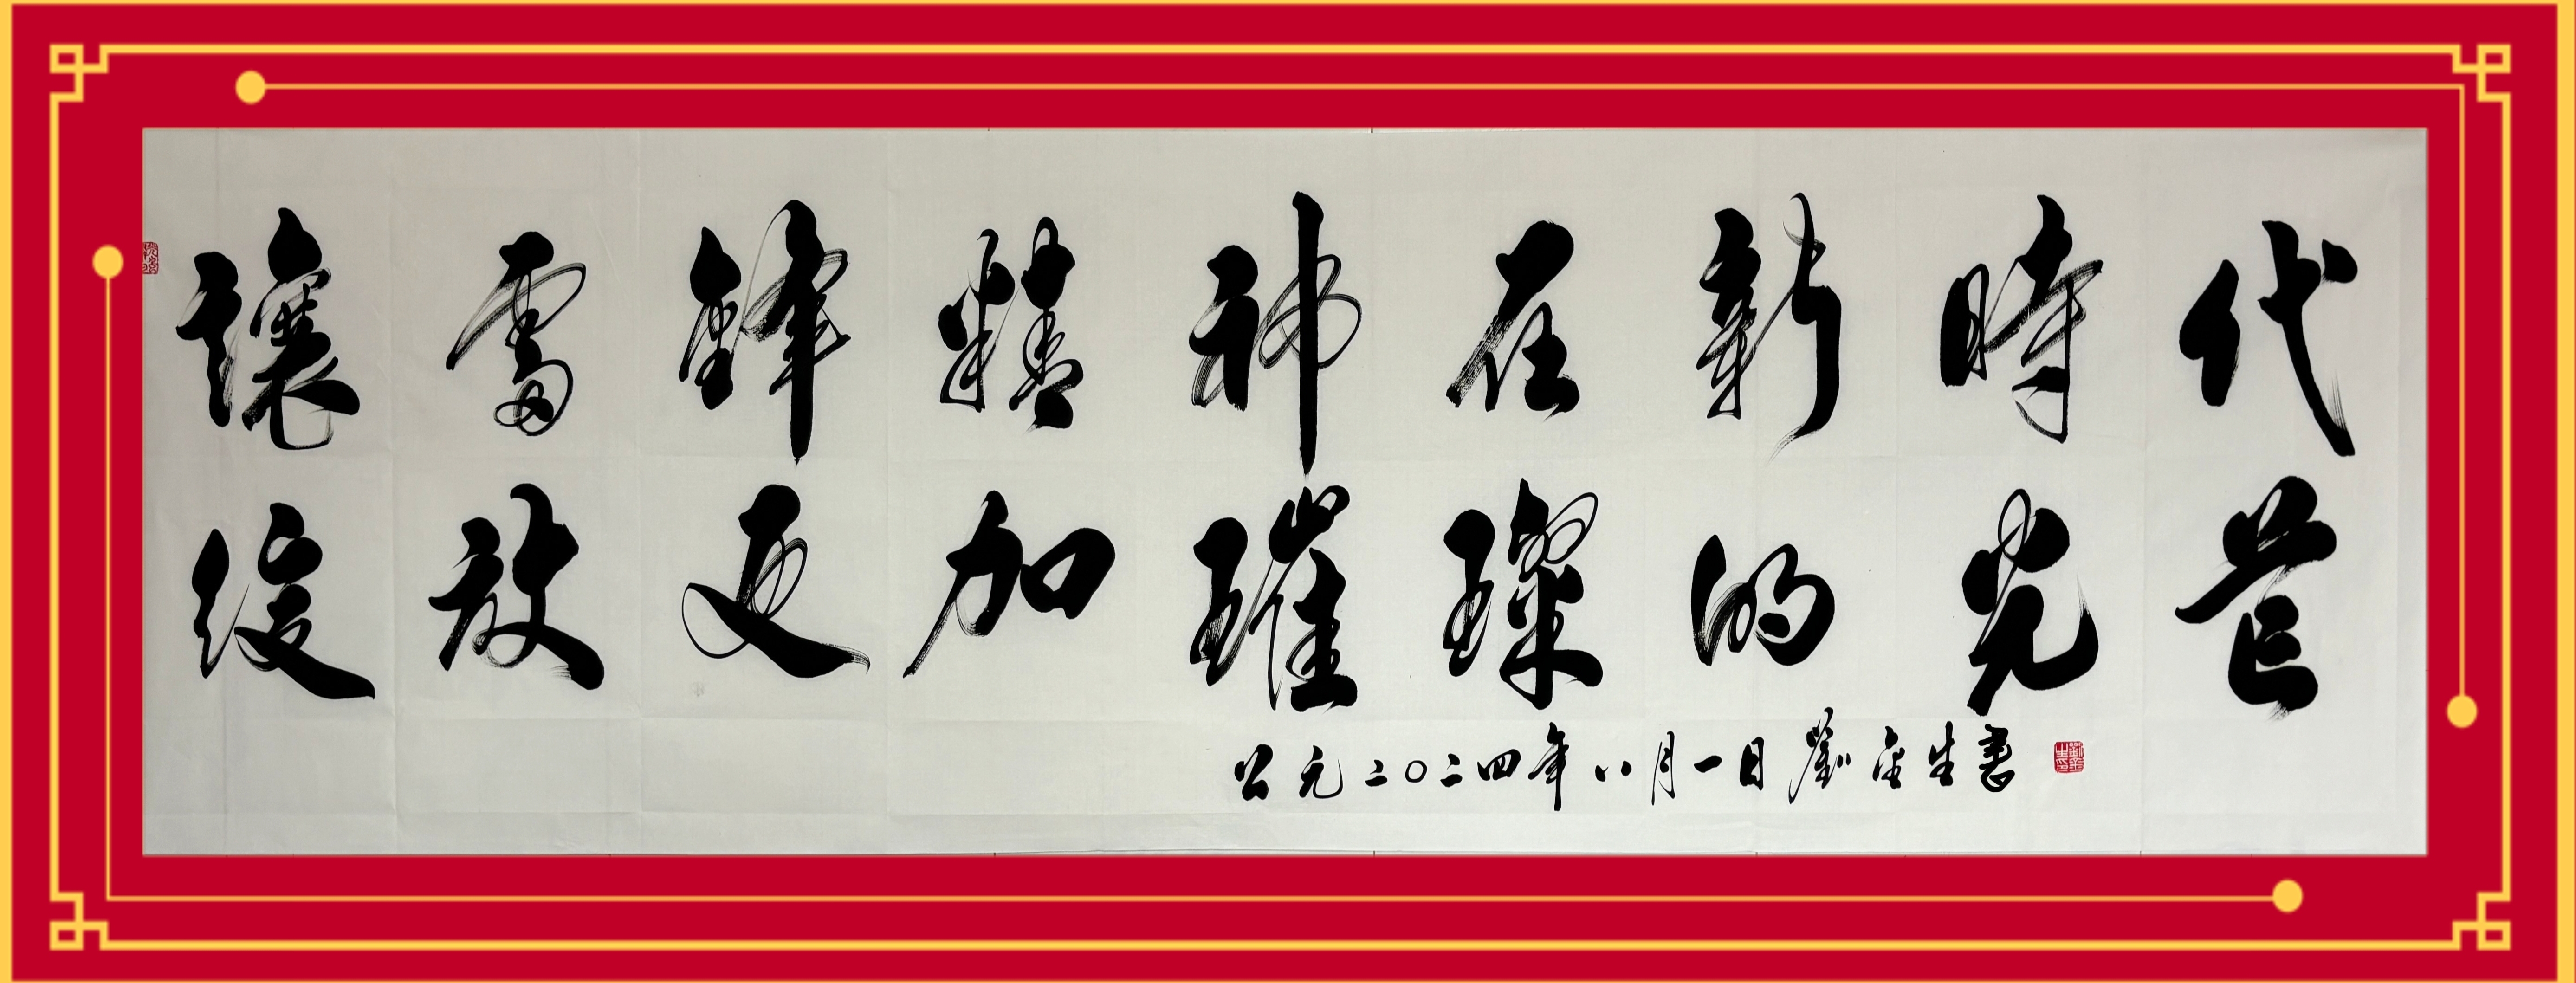 讓雷鋒精神在新時代
綻放更加璀璨的光芒
公元二〇二四年八月一日劉金生書